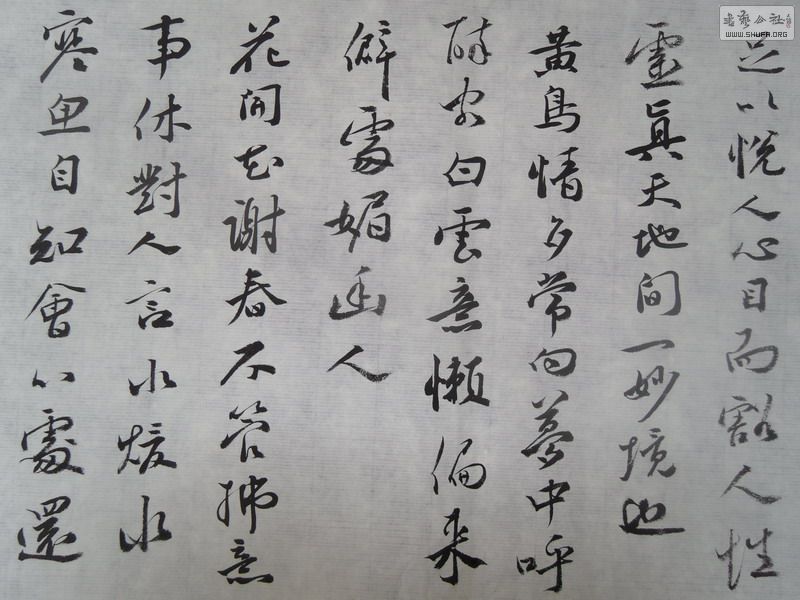 足以悅人心目而豁人性
靈真天地間一妙境也
黃鳥情多常向夢中呼
醉客白雲意懶偏來
僻處媚幽人
花開花謝春不管拂意
事休對人言水煖水
寒魚自知會心處還
書法公社
WWW.SHUFA.ORG